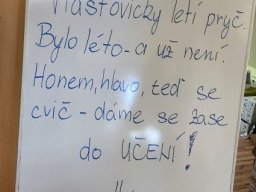 Vlaštovičky letí pryč.
Bylo léto - a už není.
Honem, hlavo, teď se
cvič - dáme se zase
do UČENÍ!